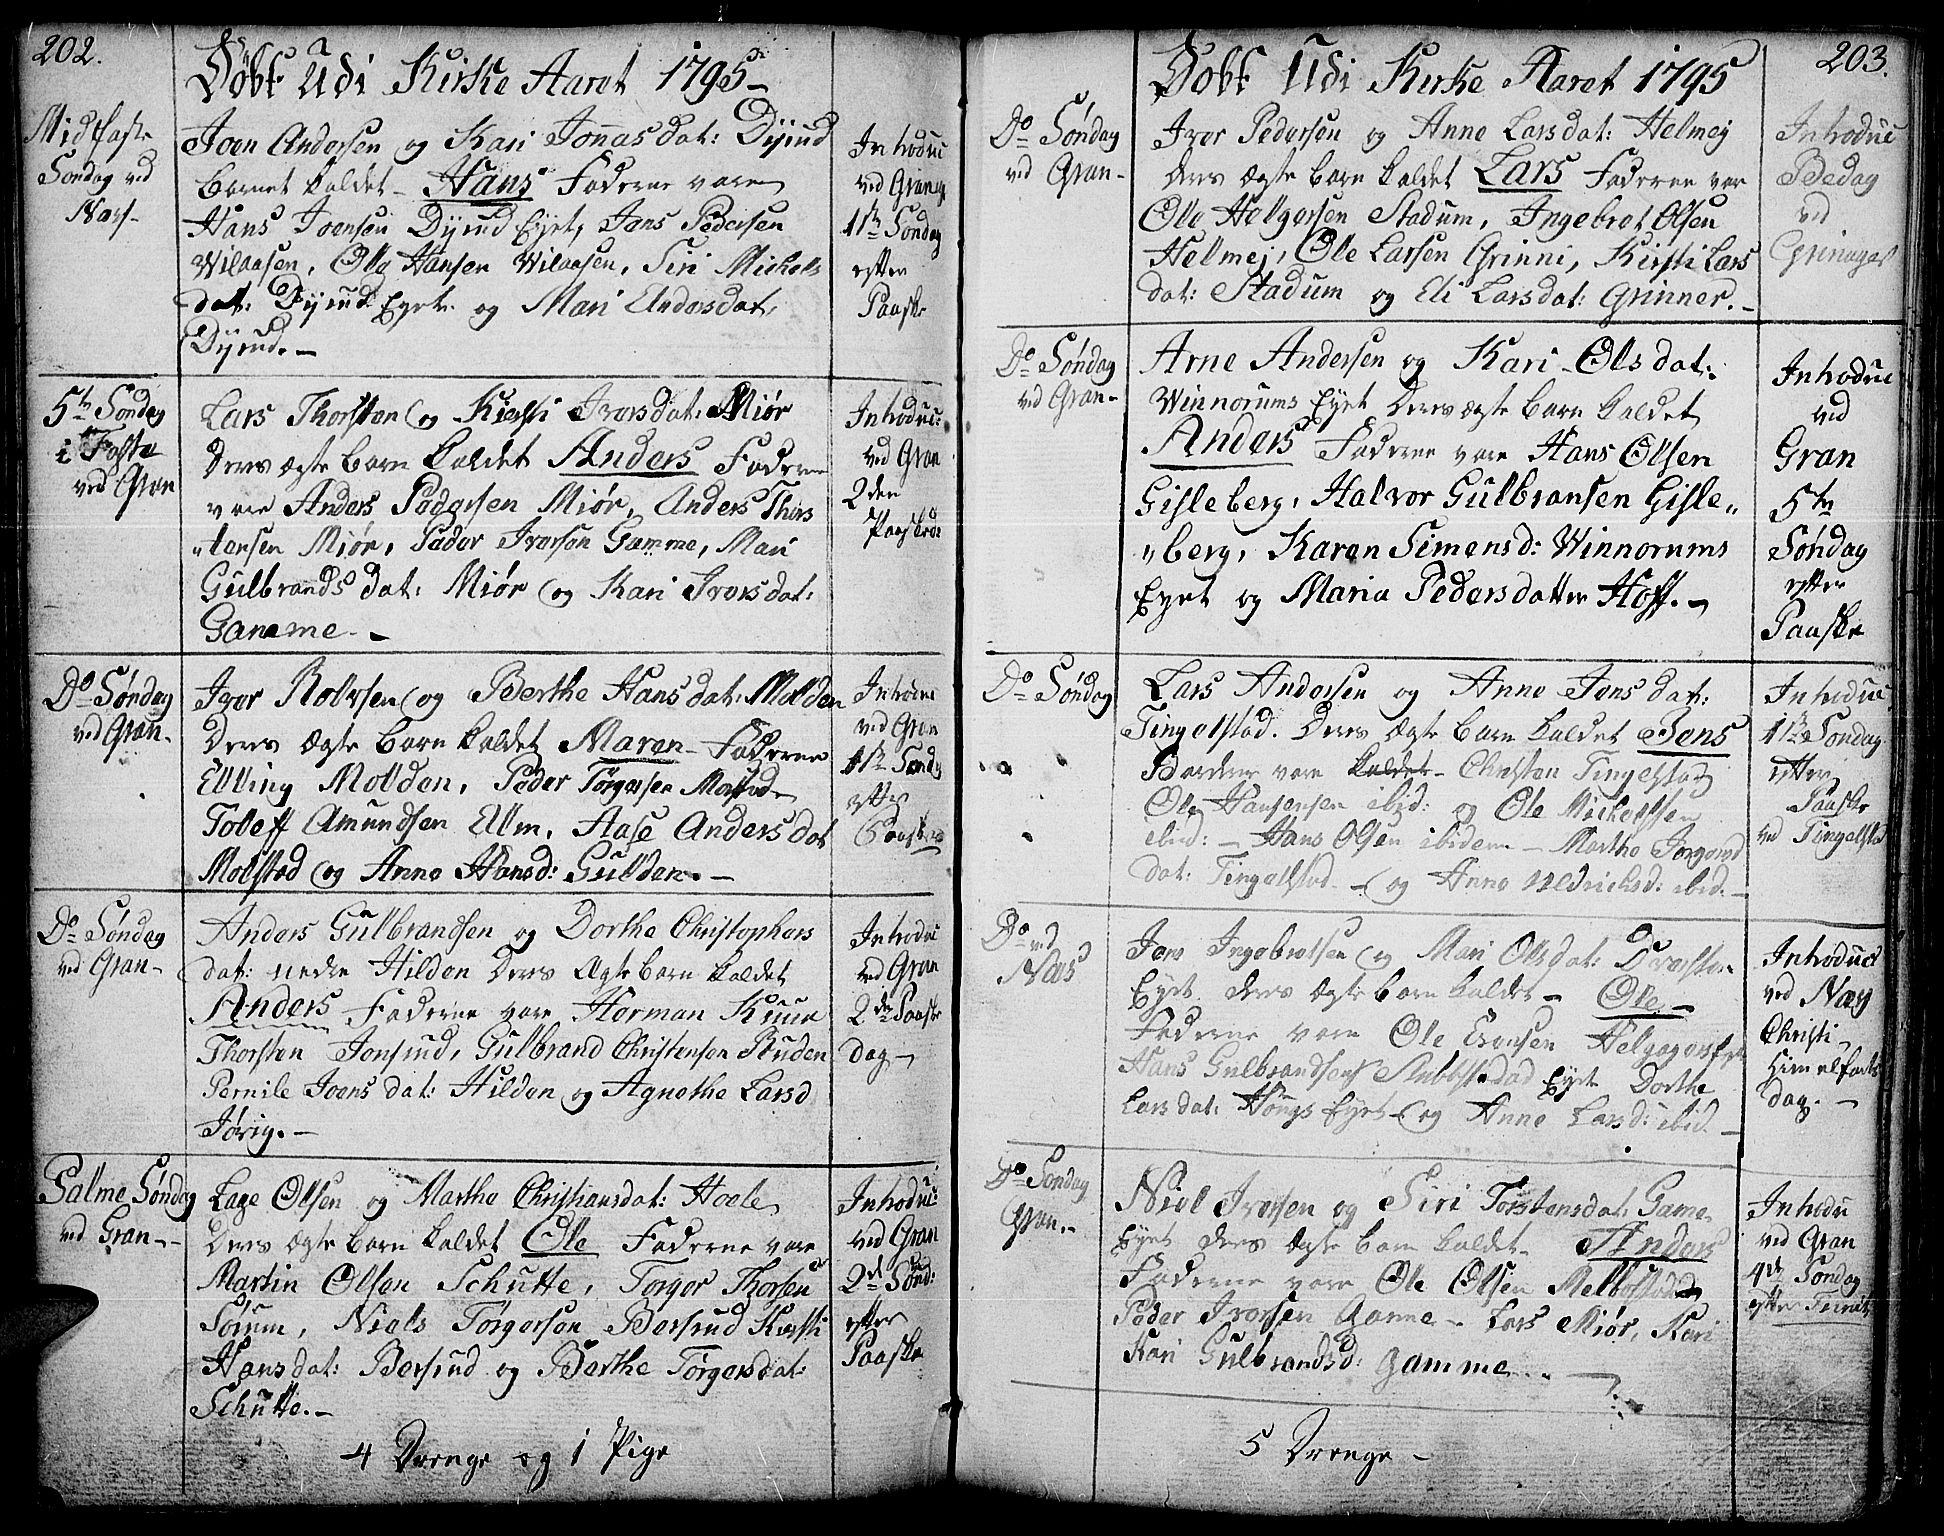 202.
Döbt Udi Kirke Aaret 1795
Midfaste
Søndag ved
Næs-
Joen Andersen og Kari Jonasdat: Dÿrud
barnet kaldet - Hans Faderne vare
Hans Joensen Dyrud Eyet, Jens Pedersen
Wilaasen, Ole Hansen Wilaasen, Siri Michels
dat: Dyrud Eyet og Mari Endersdat,
Dyrud. -
Introduc
ved Gran
1ste Søndag
efter
Paaske
5te Søndag
i Faste
ved Gran
Lars Thorsten og Kirsti Iversdat: Miør
Deres ægte barn kaldet Anders Faderne
vare Anders Pedersen Miør, Anders Thors
"tensen Miør, Peder Iversen Gamme, Mari
Gulbrandsdat: Miør og Kari Iversdat:
Gamme. -
Introduc:
ved Gran
2den
Paaskeda
Do Søndag
ved Gran-
Iver Rolvsen og Berthe Hansdat: Molden
Deres Ægte barn kaldet Maren - Faderne
Elling Molden, Peder Torgersen
Toleff Amundsen Ellm, Aase Andersdat
Molstad og Anne Hansd: Gulden. -
Introduc
ved Gran
1ste Sønd
efter
Paaske
Do Søndag
ved Gran-
Anders Gulbrandsen og Dorthe Christophers
dat: nedre Hilden Deres Ægte barn kaldet
Anders Faderne vare Herman
Thorsten Jonsrud, Gulbrand Christensen Ruden
Pernile Joensdat: Hilden og Agnethe Larsd
Jørig. -
Introdu
ved Gran
2den Paaske
Dag -
Palme Søndag
ved Gran -
Lage Olsen og Marthe Christiansdat: Hoele
Deres Ægte barn kaldet Ole Faderne vare
Martin Olsen Schutte, Torger Thorsen
Sørum, Niels Tørgersen Bersrud Kirsti
Hansdat: Bersrud og Berthe Torgersdat:
Schutte. -
Introduc:
ved Gran
2den Sønd:
efter
Paaske
4 Drenge og 1 Pige
203.
Dobt Udi Kirke Aaret 1795
Do Søndag
ved Gran-
Iver Pedersen og Anne Larsdat: Helmej
Deres ægte barn kaldet Lars Faderne var
Ole Helgersen Stadum, Ingebret Olsen
Helmej, Ole Larsen Grinni, Kirsti Lars
dat: Stadum og Eli Larsdat: Grinner. -
Introduc
Bedag
ved
Do Søndag
ved Gran-
Arne Andersen og Kari Olsdat:
Winnorums Eyet Deres ægte barn kaldet
Anders Faderne vare Hans Olsen
Gisleberg, Halvor Gulbransen Gisle„
"berg, Karen Simensd: Winnorums
Eyet og Maria Pedersdatter Hoff. -
Introduc
ved
Gran
5te
Søndag
efter
Paaske
Do Søndag
Lars Andersen og Anne Jensdat:
Tingelstad. Deres Ægte barn kaldet Jens
Faderne vare kaldet - Christen Tingelstad
Ole Hansensen ibid: og Ole Mickelsen
ibid: - Hans Olsen ibidem - Marthe Jorgens
dat: Tingelstad - og Anne Uldrichsd: ibid. -
Introduc
1ste Søndag
efter
Paaske
ved Tingelstad
Do ved
Næs
Jens Ingebretsen og Mari Olsdat:
Eyet deres ægte barn kaldet - Ole -
Faderne vare Ole
Hans Gulbrandsens Eyet Dorthe
Larsdat: Eyet og Anne Larsd: ibid. -
Introduct
ved Næs
Christi
Himelfarts
Dag. -
Do Søndag
Gran. -
Niel Iversen og Siri Torstensdat: Game
Eyet deres Ægte barn kaldet Anders
Faderne vare Ole Olsen Melbostad
Peder Iversen Gamme - Lars Miør, Kari
Kari Gulbrandsd: Gamme. -
Introdu
ved Gran
4de Søndag
efter
5 Drenge -